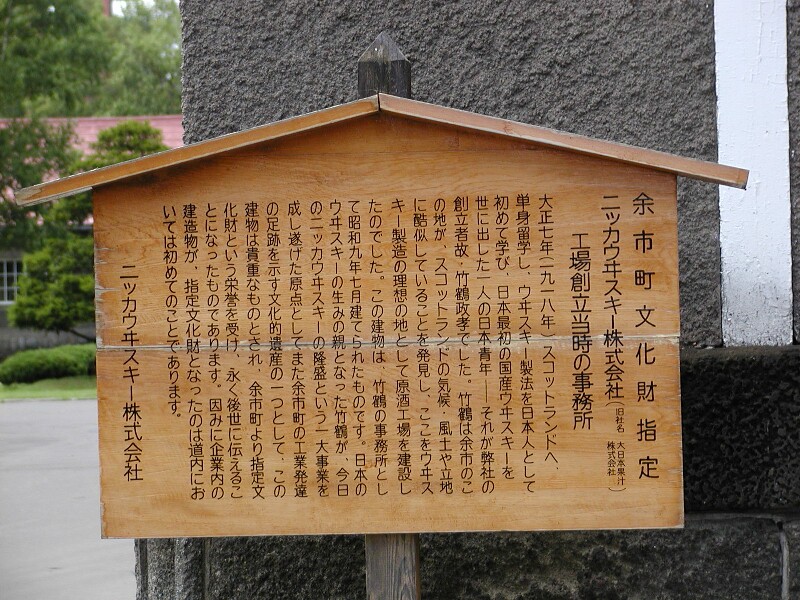 余市町文化財指定
ニッカウヰスキー株式会社(旧社名 大日本果汁株式会社)
工場創立当時の事務所
大正七年(一九一八年)スコットランドへ、
単身留学し、ウヰスキー製法を日本人として
初めて学び、日本最初の国産ウヰスキーを
世に出した一人の日本青年――それが弊社の
創立者故、竹鶴政孝でした。竹鶴は余市のこ
の地が、スコットランドの気候・風土や立地
に酷似していることを発見し、ここをウヰス
キー製造の理想の地として原酒工場を建設し
たのでした。この建物は、竹鶴の事務所とし
て昭和九年七月建てられたものです。日本の
ウヰスキーの生みの親となった竹鶴が、今日
のニッカウヰスキーの隆盛という一大事業を
成し遂げた原点としてまた余市町の工業発達
の足跡を示す文化的遺産の一つとして、この
建物は貴重なものとされ、余市町より指定文
化財という栄誉を受け、永く後世に伝えるこ
とになったものであります。因みに企業内の
建造物が、指定文化財となったのは道内にお
いては初めてのことであります。
ニッカウヰスキー株式会社